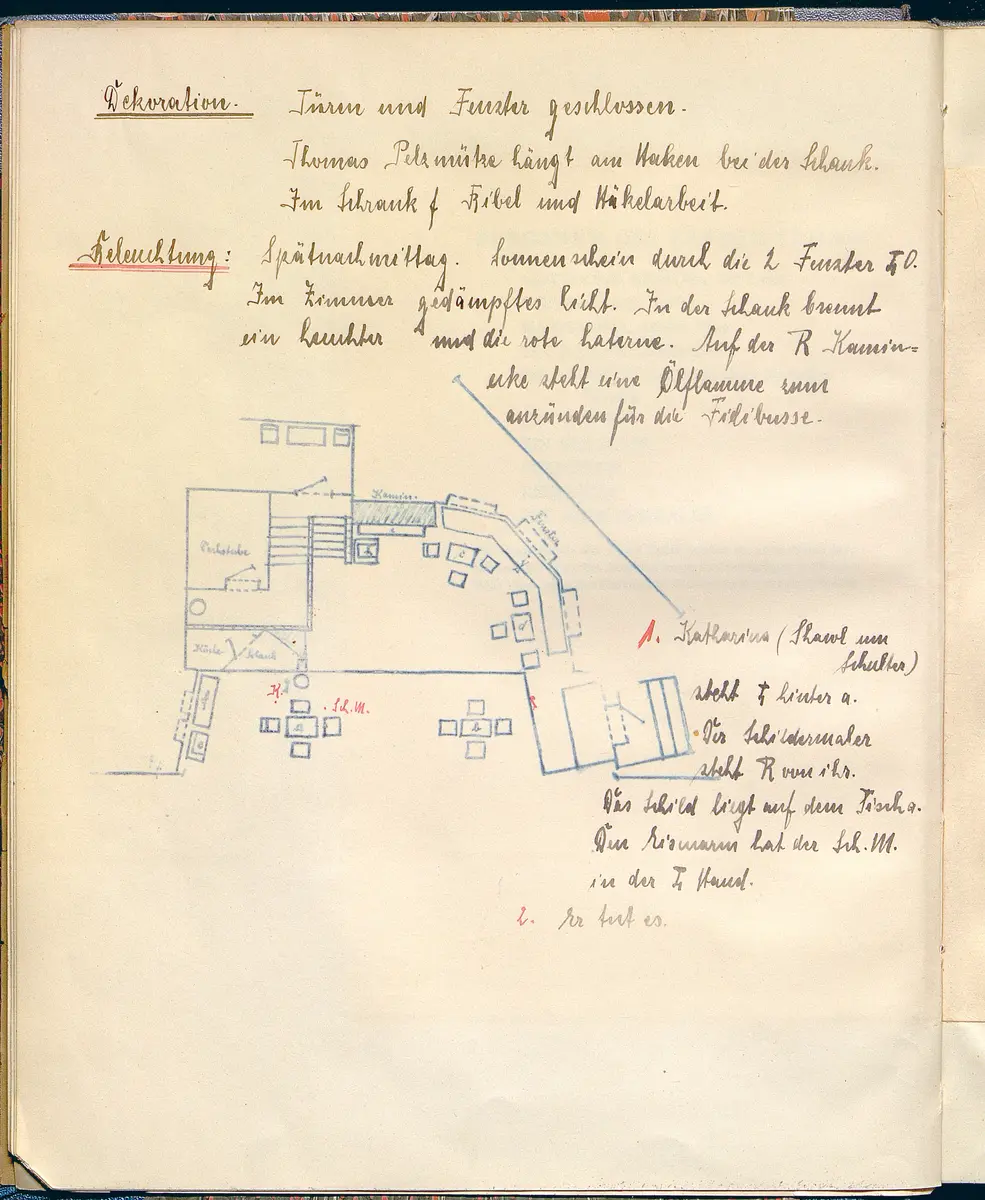 Dekoration. Türen und Fenster geschlossen.
Thomas Pelzmütze hängt am Haken bei der Schank.
Im Schrank f Bibel und Häkelarbeit.
Beleuchtung: Spätnachmittag. Sonnenschein durch die 2 Fenster L O.
Im Zimmer gedämpftes Licht. In der Schank brennt
ein Leuchter und die rote Laterne. Auf der R Kamin=
ecke steht eine Ölflamme zum
anzünden für die Fidibusse.
Kamin.
Fenster
Pechstube
Küche
Schank
K.
Sch. M.
1. Katharina (Shawl um
Schulter)
steht L hinter a.
Der Schildermaler
steht R von ihr.
Das Schild liegt auf dem Tisch a.
Den Eismann hat der Sch. M.
in der L Hand.
2. Er tut es.